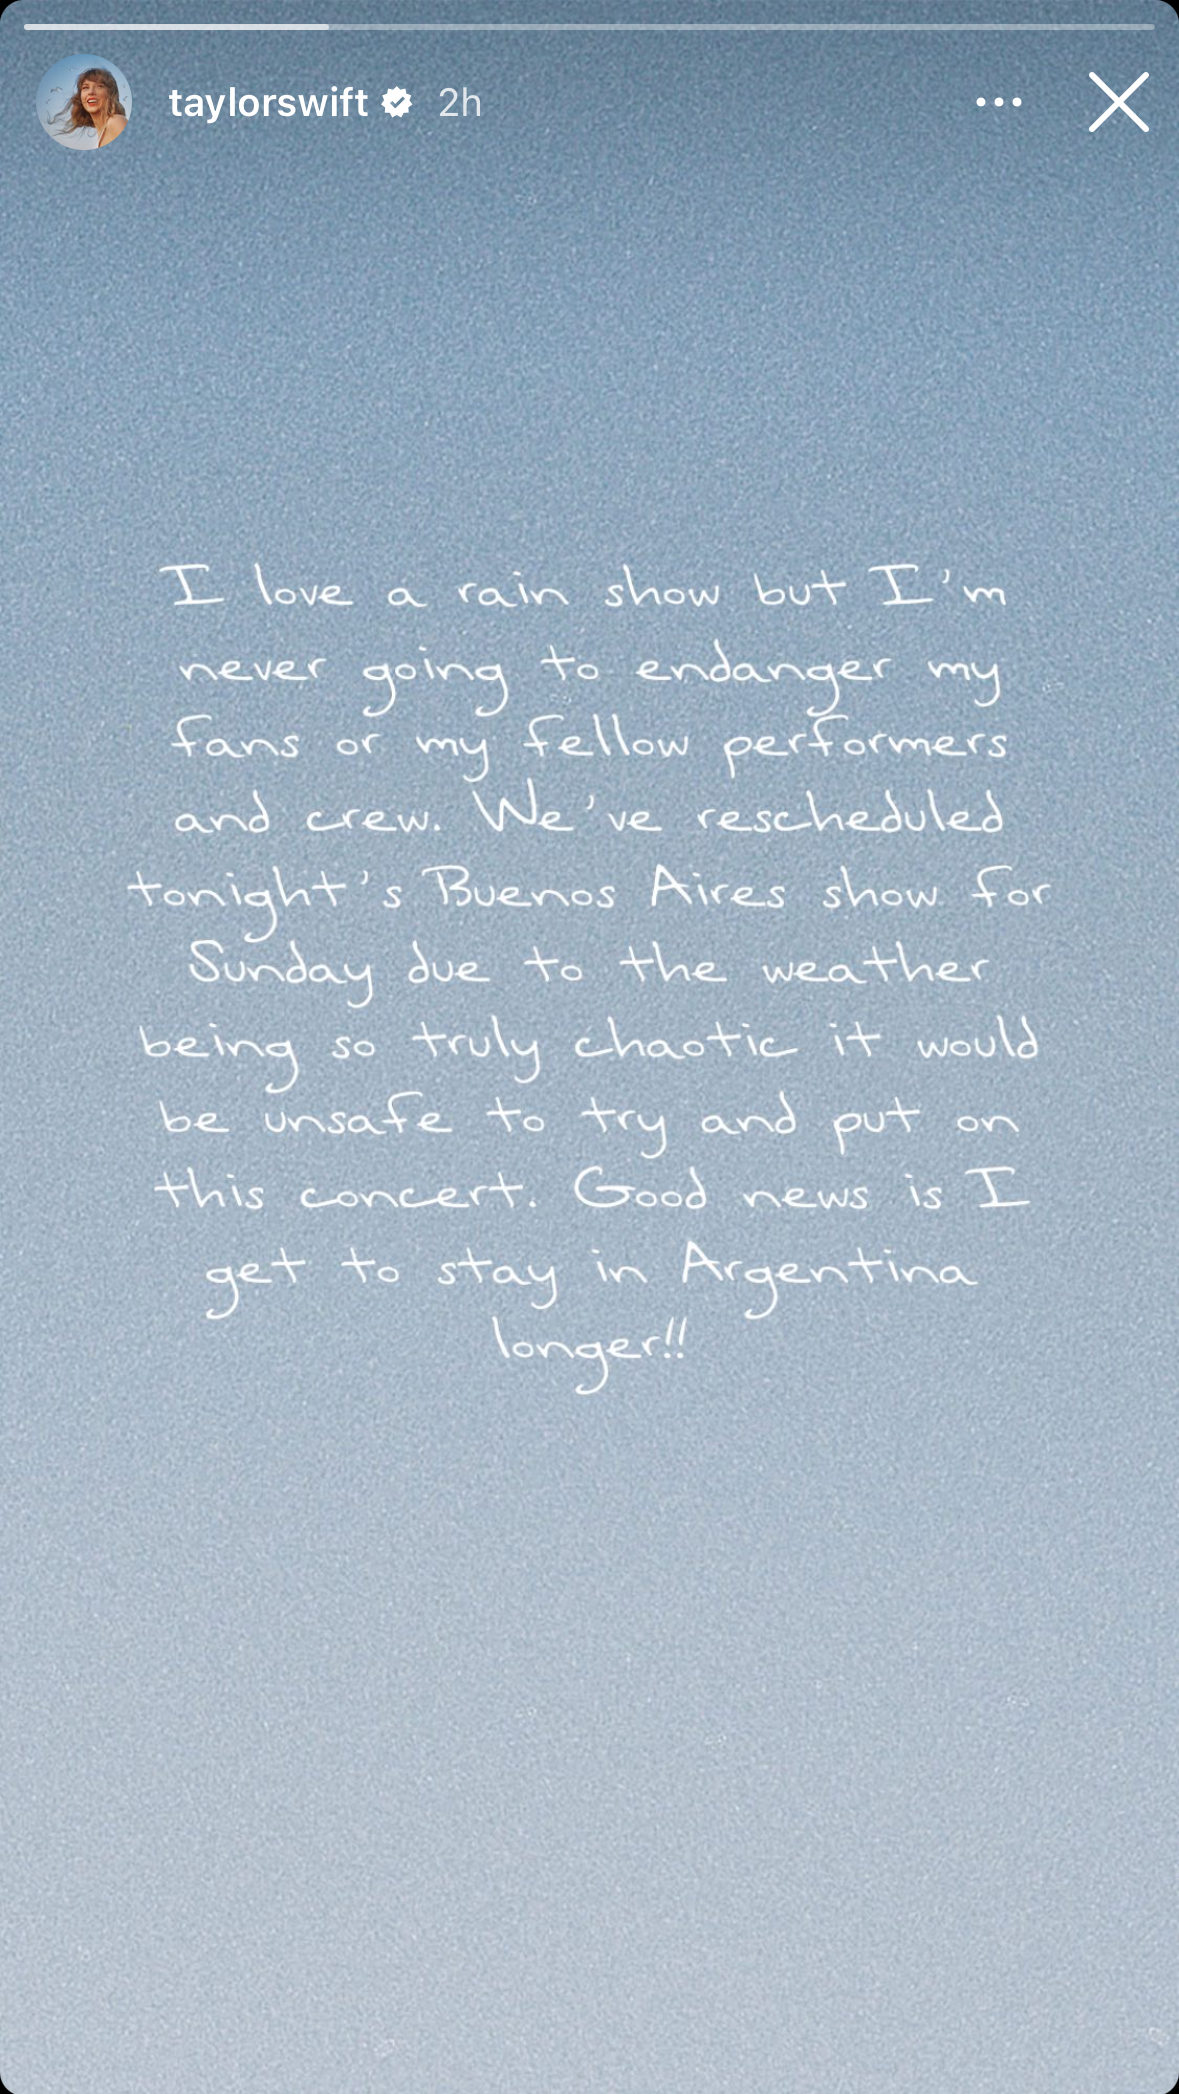 taylorswift 2h
I love a rain show but I'm
never going to endanger my
fans or my fellow performers
and crew. We've rescheduled
tonight's Buenos Aires show for
Sunday due to the weather
being so truly chaotic it would
be unsafe to try and put on
this concert. Good news is I
get to stay in Argentina
longer!!